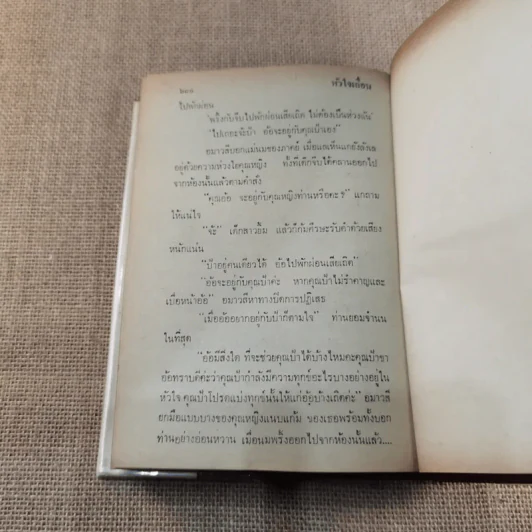 ๒๓๑
หัวใจเถื่อน
ไปพักผ่อน
"พริ้งก็รีบไปพักผ่อนเสียเถิด ไม่ต้องเป็นห่วงฉัน"
"ไปเถอะจ้ะป้า อ้อจะอยู่กับคุณป้าเอง"
อมาวสีบอกแม่นมของภาคย์ เมื่อแลเห็นแกยังลังเล
อยู่ด้วยความห่วงใยคุณหญิง ทั้งที่เด็กจีบได้คลานออกไป
จากห้องนั้นแล้วตามคำสั่ง
"คุณอ้อ จะอยู่กับคุณหญิงท่านหรือคะ?" แกถาม
ให้แน่ใจ
"จ้ะ" เด็กสาวยิ้ม แล้วก็ก้มศีรษะรับคำด้วยเสียง
หนักแน่น
"ป้าอยู่คนเดียวได้ อ้อไปพักผ่อนเสียเถิด"
"อ้อจะอยู่กับคุณป้าค่ะ หากคุณป้าไม่รำคาญและ
เบื่อหน้าอ้อ" อมาวสีหาทางปิดการปฏิเสธ
"เมื่ออ้ออยากอยู่กับป้าก็ตามใจ" ท่านยอมจำนน
ในที่สุด
"อ้อมีสิ่งใด ที่จะช่วยคุณป้าได้บ้างไหมคะคุณป้าขา
อ้อทราบดีค่ะว่าคุณป้ากำลังมีความทุกข์อะไรบางอย่างอยู่ใน
หัวใจ คุณป้าโปรดแบ่งทุกข์นั้นให้แก่อ้อบ้างเถิดค่ะ" อมาวสี
ยกมือแบบบางของคุณหญิงแนบแก้ม ของเธอพร้อมทั้งบอก
ท่านอย่างอ่อนหวาน เมื่อนมพริ้งออกไปจากห้องนั้นแล้ว....